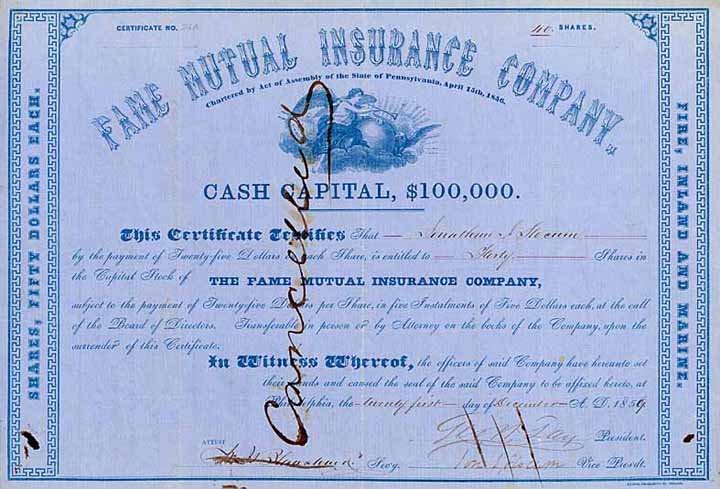 CERTIFICATE NO.
40 SHARES.
FAME MUTUAL INSURANCE COMPANY,
Chartered by Act of Assembly of the State of Pennsylvania, April 15th, 1856.
CASH CAPITAL, $100,000.
SHARES, FIFTY DOLLARS EACH.
FIRE, INLAND AND MARINE.
Cancelled
This Certificate Testifies That Jonathan J. Slocum
by the payment of Twenty-five Dollars on each Share, is entitled to Forty Shares in
the Capital Stock of THE FAME MUTUAL INSURANCE COMPANY,
subject to the payment of Twenty-five Dollars per Share, in five Instalments of Five Dollars each, at the call
of the Board of Directors. Transferable in person or by Attorney on the books of the Company, upon the
surrender of this Certificate.
In Witness Whereof, the officers of said Company have hereunto set
their hands and caused the seal of the said Company to be affixed hereto, at
Philadelphia, the twenty first day of December A. D. 1856
President.
ATTEST
Secy.
Vice Presdt.